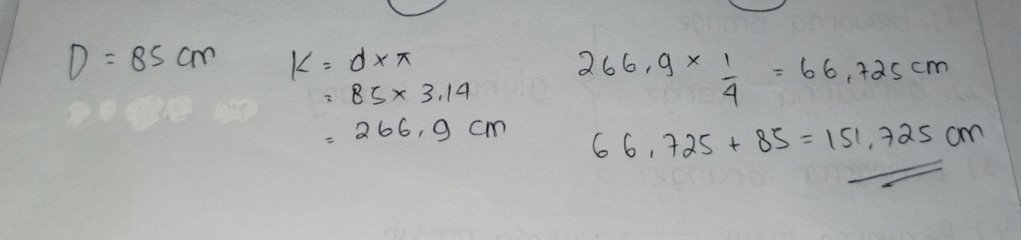 D = 85 cm
K = d × π
= 85 × 3,14
= 266,9 cm
266,9 × 1/4 = 66,725 cm
66,725 + 85 = 151,725 cm